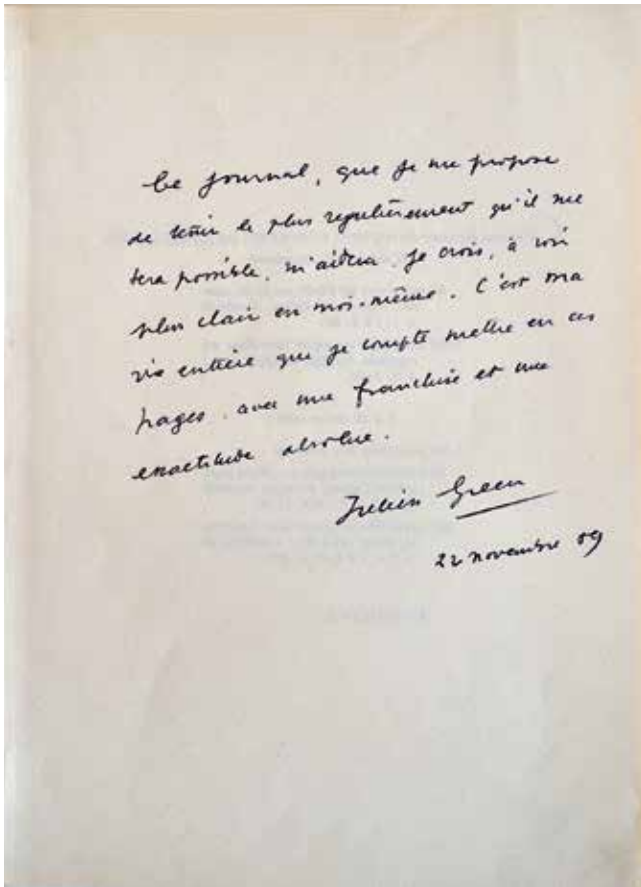 Ce journal, que je me propose
de tenir le plus regulièrement qu'il me
sera possible, m'aidera, je crois, à voir
plus clair en moi-même. C'est ma
vie entière que je compte mettre en ces
pages, avec une franchise et une
exactitude absolue.
Julien Green
22 novembre 89